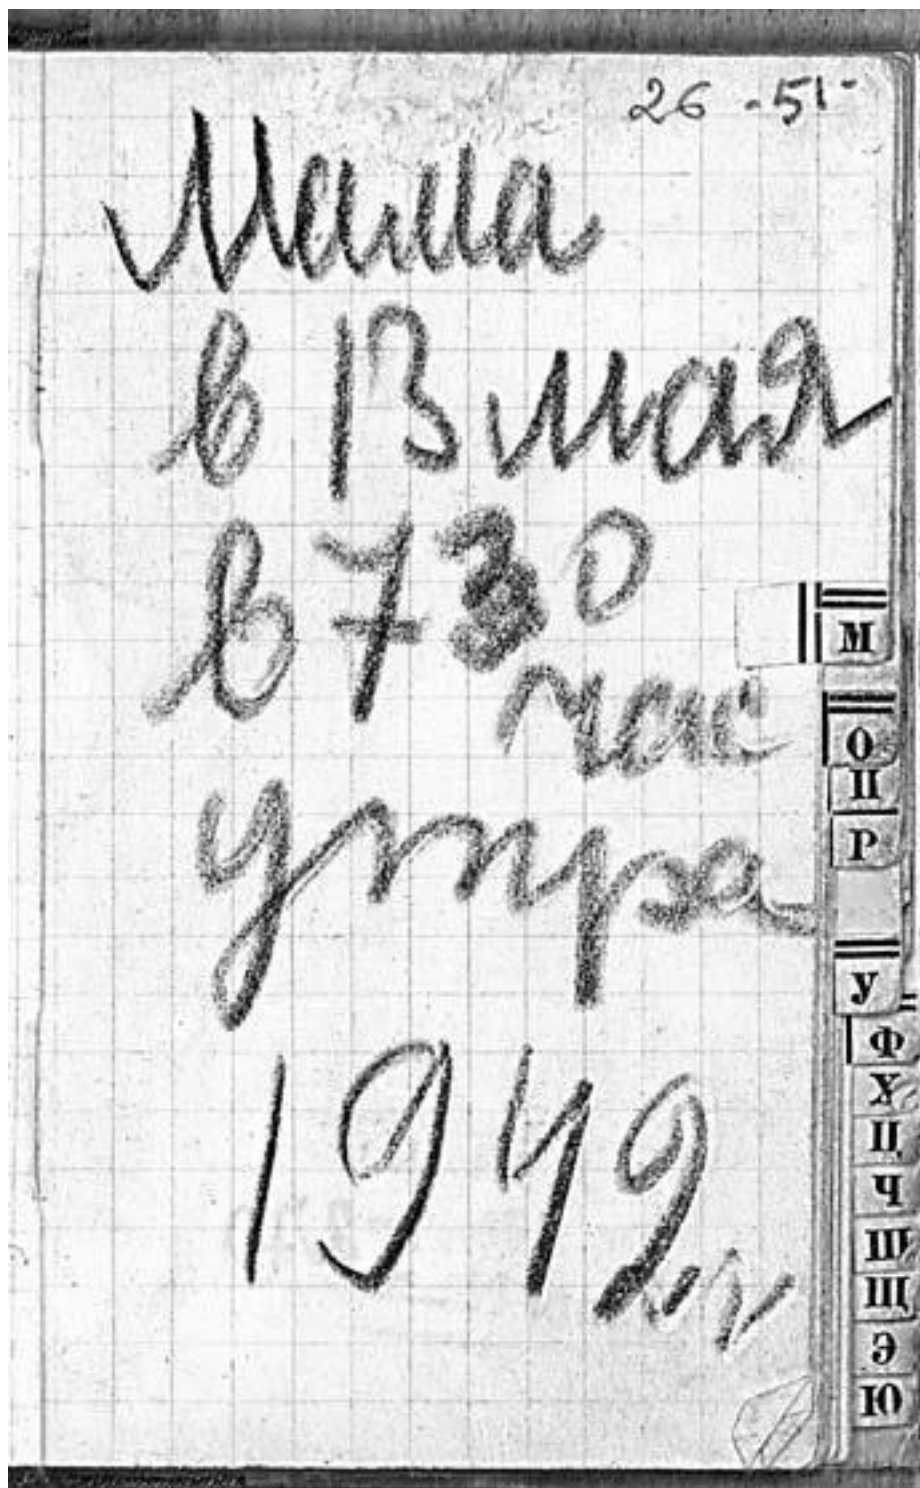 26 -51-
Мама
в 13 мая
в 7 30
час
утра
1942 г
М
О
П
Р
У
Ф
Х
Ц
Ч
Ш
Щ
Э
Ю